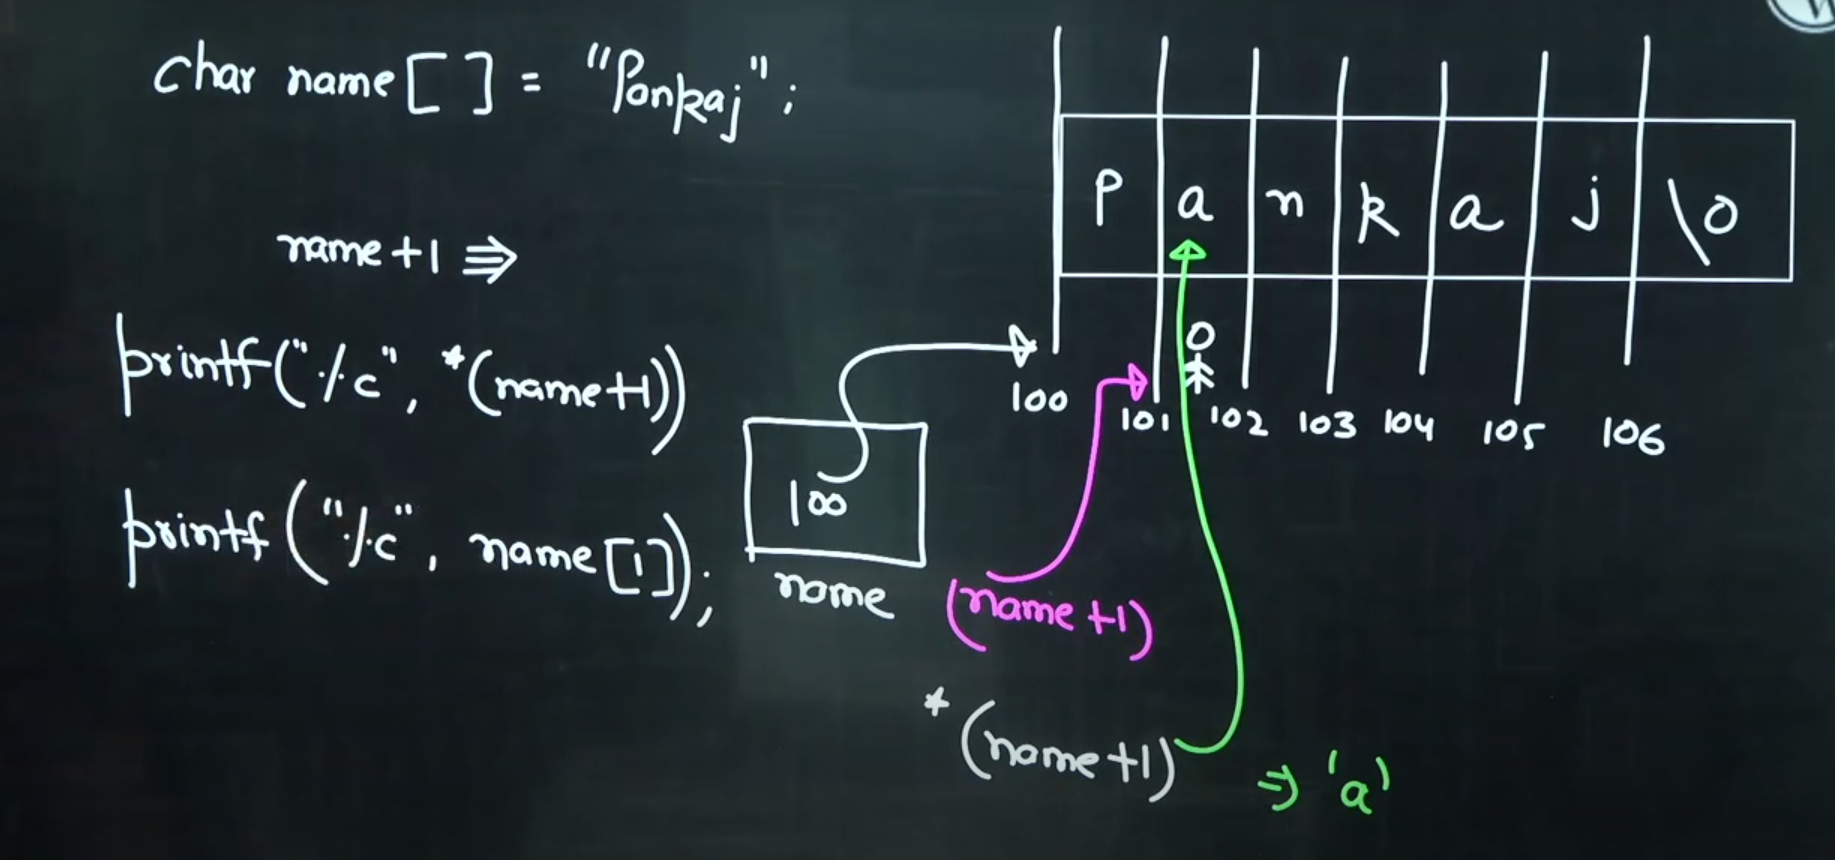 char name[] = "Pankaj";
name+1 ⇛
printf("%c", *(name+1))
printf("%c", name[1]);
P a n k a j \0
100 101 102 103 104 105 106
100
name
(name+1)
*(name+1) ⇒ 'a'